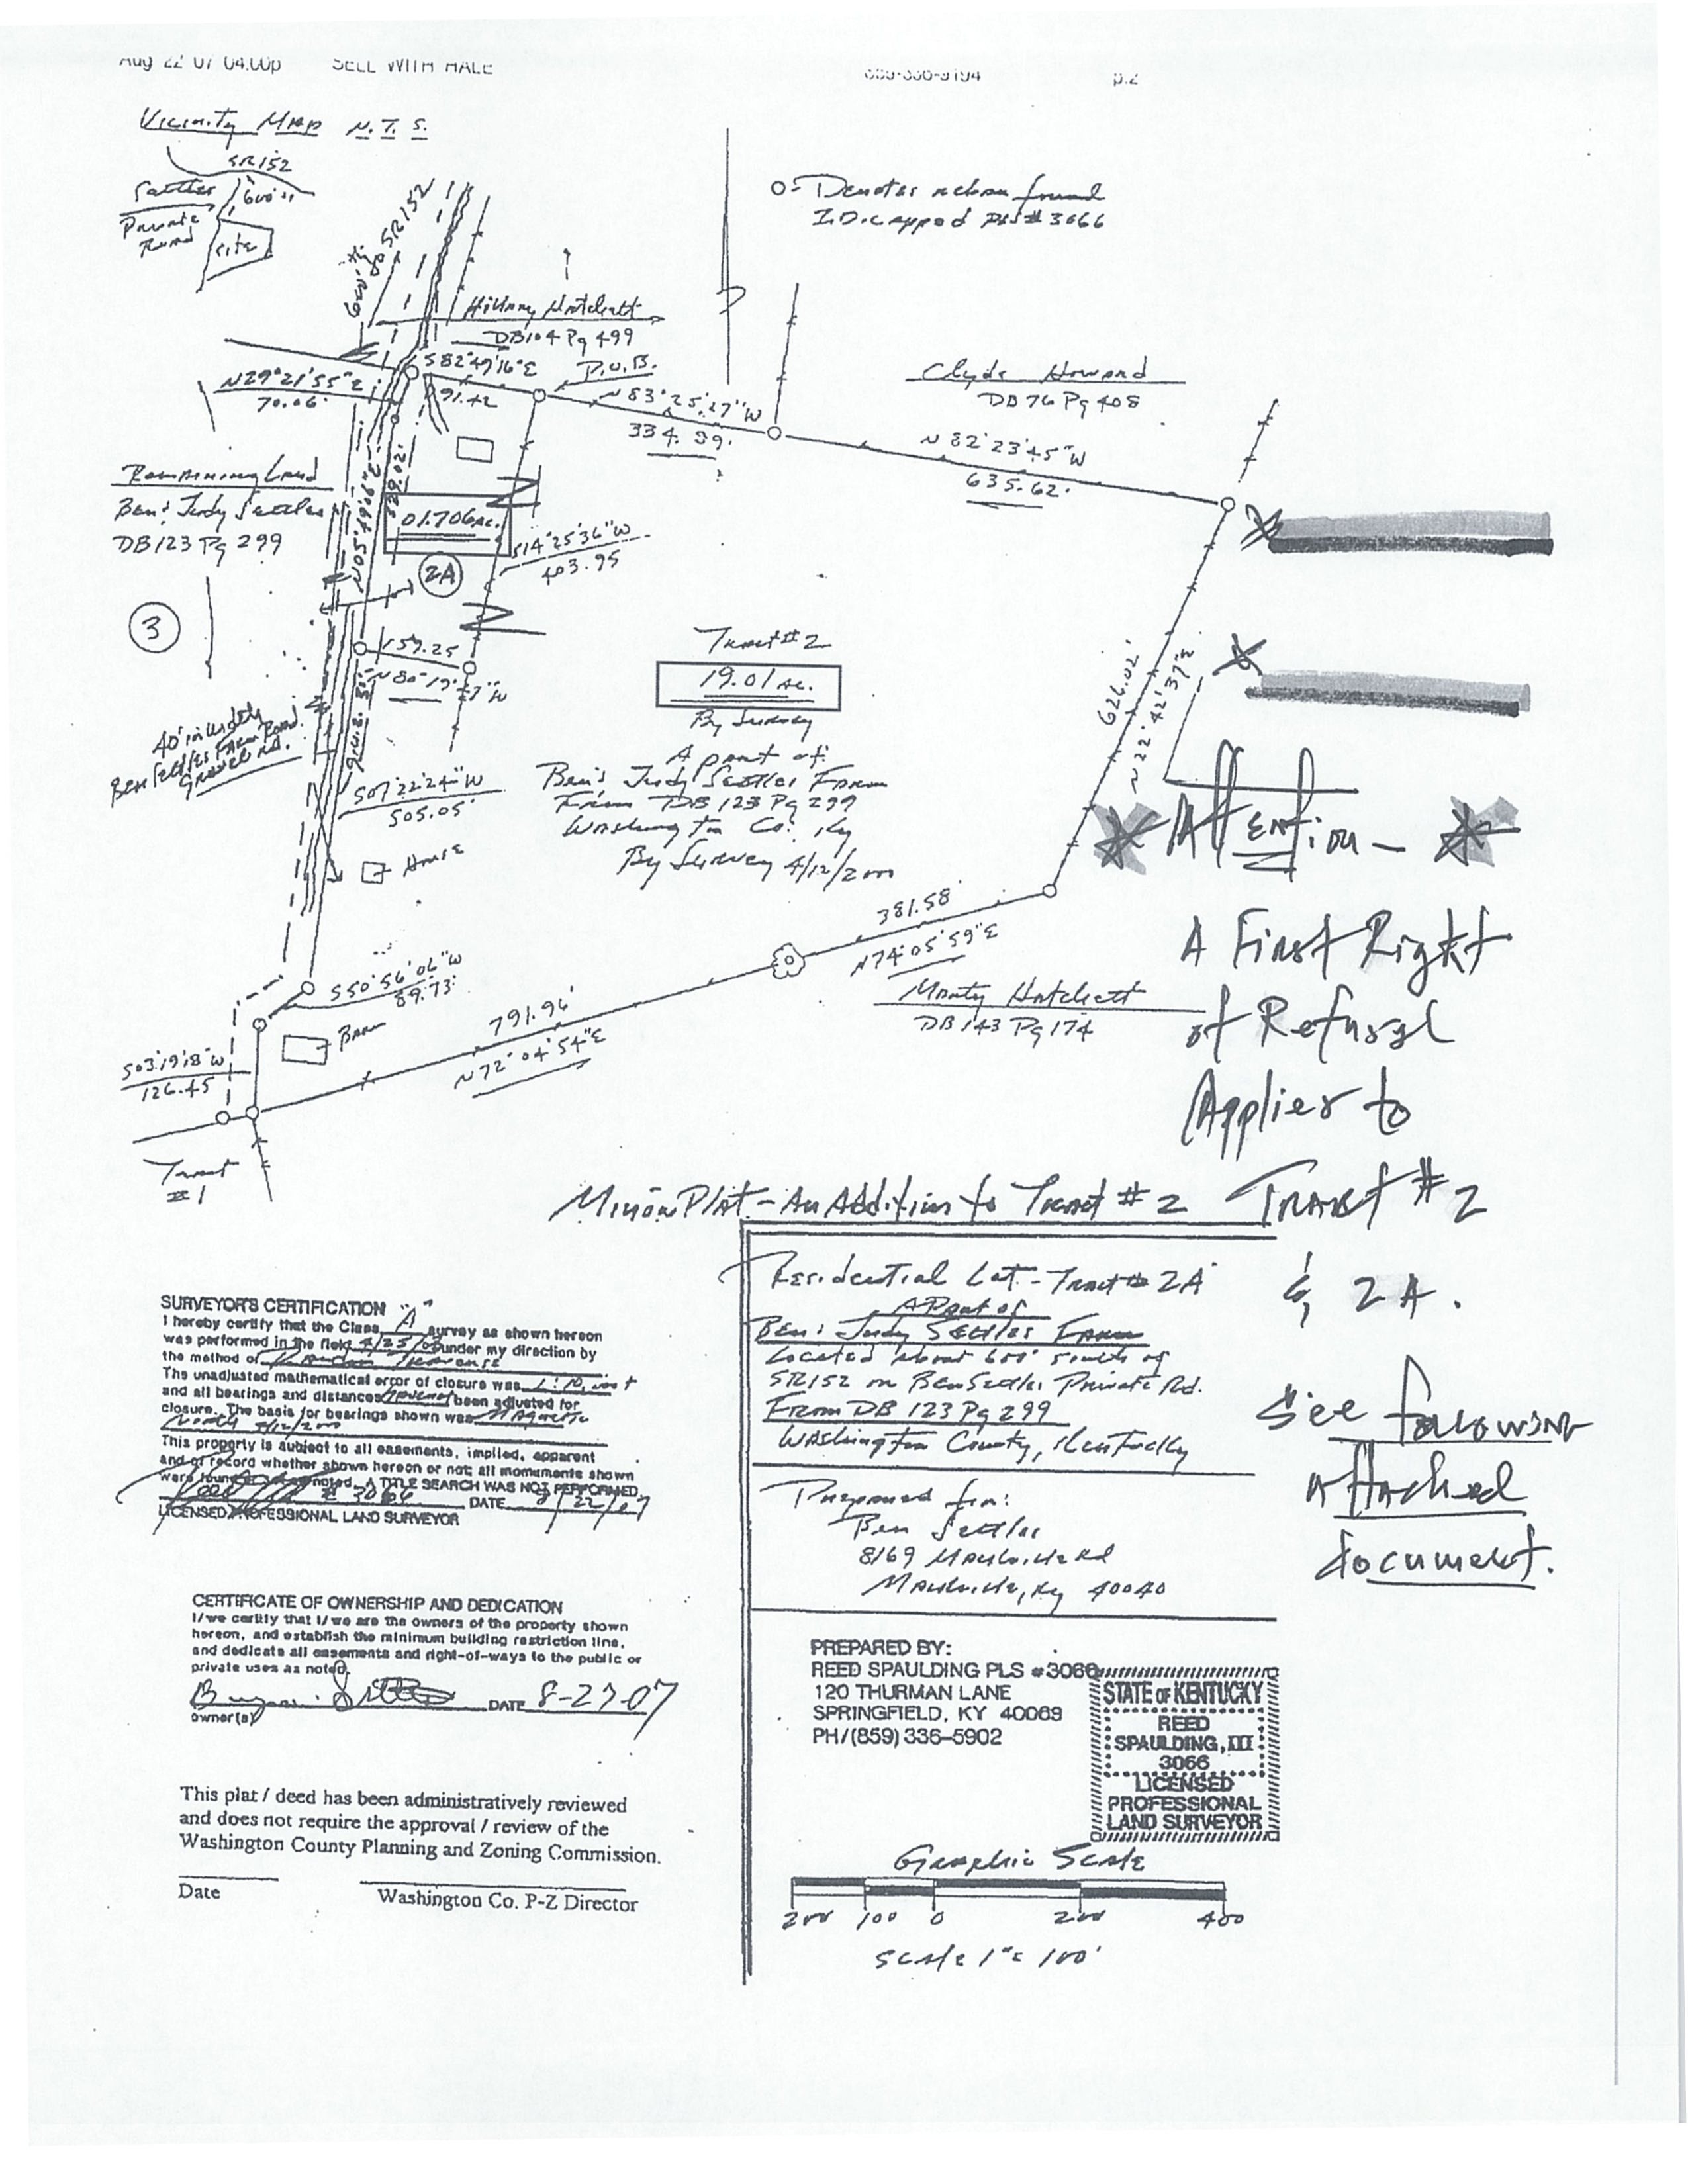 Aug 22 07 04:00p SELL WITH HALE 859-336-9194 p.2
Vicinity Map N.T.S.
SR152
600'±
Settles
Private
Road
Site
600'± to SR152
O- Denotes rebar found
I.D. capped PLS# 3066
Hillary Hatchett
DB104 Pg 499
S82°49'16"E
91.42
P.O.B.
N29°21'55"E
70.06'
N83°25'27"W
334.89'
Clyde Howard
DB76 Pg 408
N82°23'45"W
635.62'
Remaining Land
Ben & Judy Settles
DB123 Pg 299
3
01.706 Ac.
2A
S14°25'36"W
403.95
159.25
Tract #2
19.01 Ac.
By Survey
A part of:
Ben & Judy Settles Farm
From DB 123 Pg 299
Washington Co. Ky
By Survey 4/12/2000
626.02'
N22°42'37"E
40' in width
Ben Settles Farm Road
Gravel Rd.
S07°22'24"W
505.05'
House
S50°56'06"W
89.73'
Barn
S03°19'18"W
126.45
791.96'
N72°04'54"E
381.58'
N74°05'59"E
Monty Hatchett
DB143 Pg 174
Tract
#1
Attention -
A First Right
of Refusal
Applies to
Tract #2
& 2A.
See following
Attached
document.
Minor Plat - An Addition to Tract #2
Residential Lot - Tract # 2A
A Part of
Ben & Judy Settles Farm
Located about 600' south of
SR152 on Ben Settles Private Rd.
From DB 123 Pg 299
Washington County, Kentucky
Prepared for:
Ben Settles
8169 Mackville Rd
Mackville, Ky 40040
SURVEYOR'S CERTIFICATION
I hereby certify that the Class "A" survey as shown hereon
was performed in the field under my direction by
the method of Random Traverse
The unadjusted mathematical error of closure was
and all bearings and distances been adjusted for
closure. The basis for bearings shown was Magnetic
North 4/12/2000
This property is subject to all easements, implied, apparent
and of record whether shown hereon or not; all monuments shown
were found noted. A TITLE SEARCH WAS NOT PERFORMED.
# 3066 DATE 8/22/07
LICENSED PROFESSIONAL LAND SURVEYOR
CERTIFICATE OF OWNERSHIP AND DEDICATION
I/we certify that I/we are the owners of the property shown
hereon, and establish the minimum building restriction line,
and dedicate all easements and right-of-ways to the public or
private uses as noted.
DATE 8-27-07
owner(s)
This plat / deed has been administratively reviewed
and does not require the approval / review of the
Washington County Planning and Zoning Commission.
Date Washington Co. P-Z Director
PREPARED BY:
REED SPAULDING PLS #3066
120 THURMAN LANE
SPRINGFIELD, KY 40069
PH/(859) 336-5902
STATE OF KENTUCKY
REED
SPAULDING, III
3066
LICENSED
PROFESSIONAL
LAND SURVEYOR
Graphic Scale
200 100 0 200 400
Scale 1" = 100'